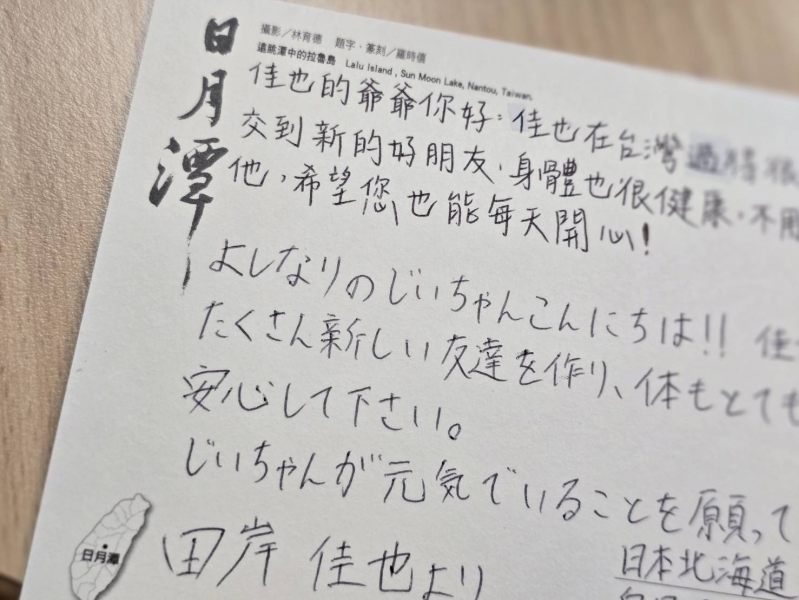 日月潭
攝影／林育德 題字・篆刻／羅時僖
遠眺潭中的拉魯島 Lalu Island , Sun Moon Lake, Nantou, Taiwan.
佳也的爺爺你好：佳也在台灣過得很
交到新的好朋友，身體也很健康，不用
他，希望您也能每天開心！
よしなりのじいちゃんこんにちは!! 佳
たくさん新しい友達を作り、体もとても
安心して下さい。
じいちゃんが元気でいることを願って
田岸 佳也より
日本北海道
日月潭